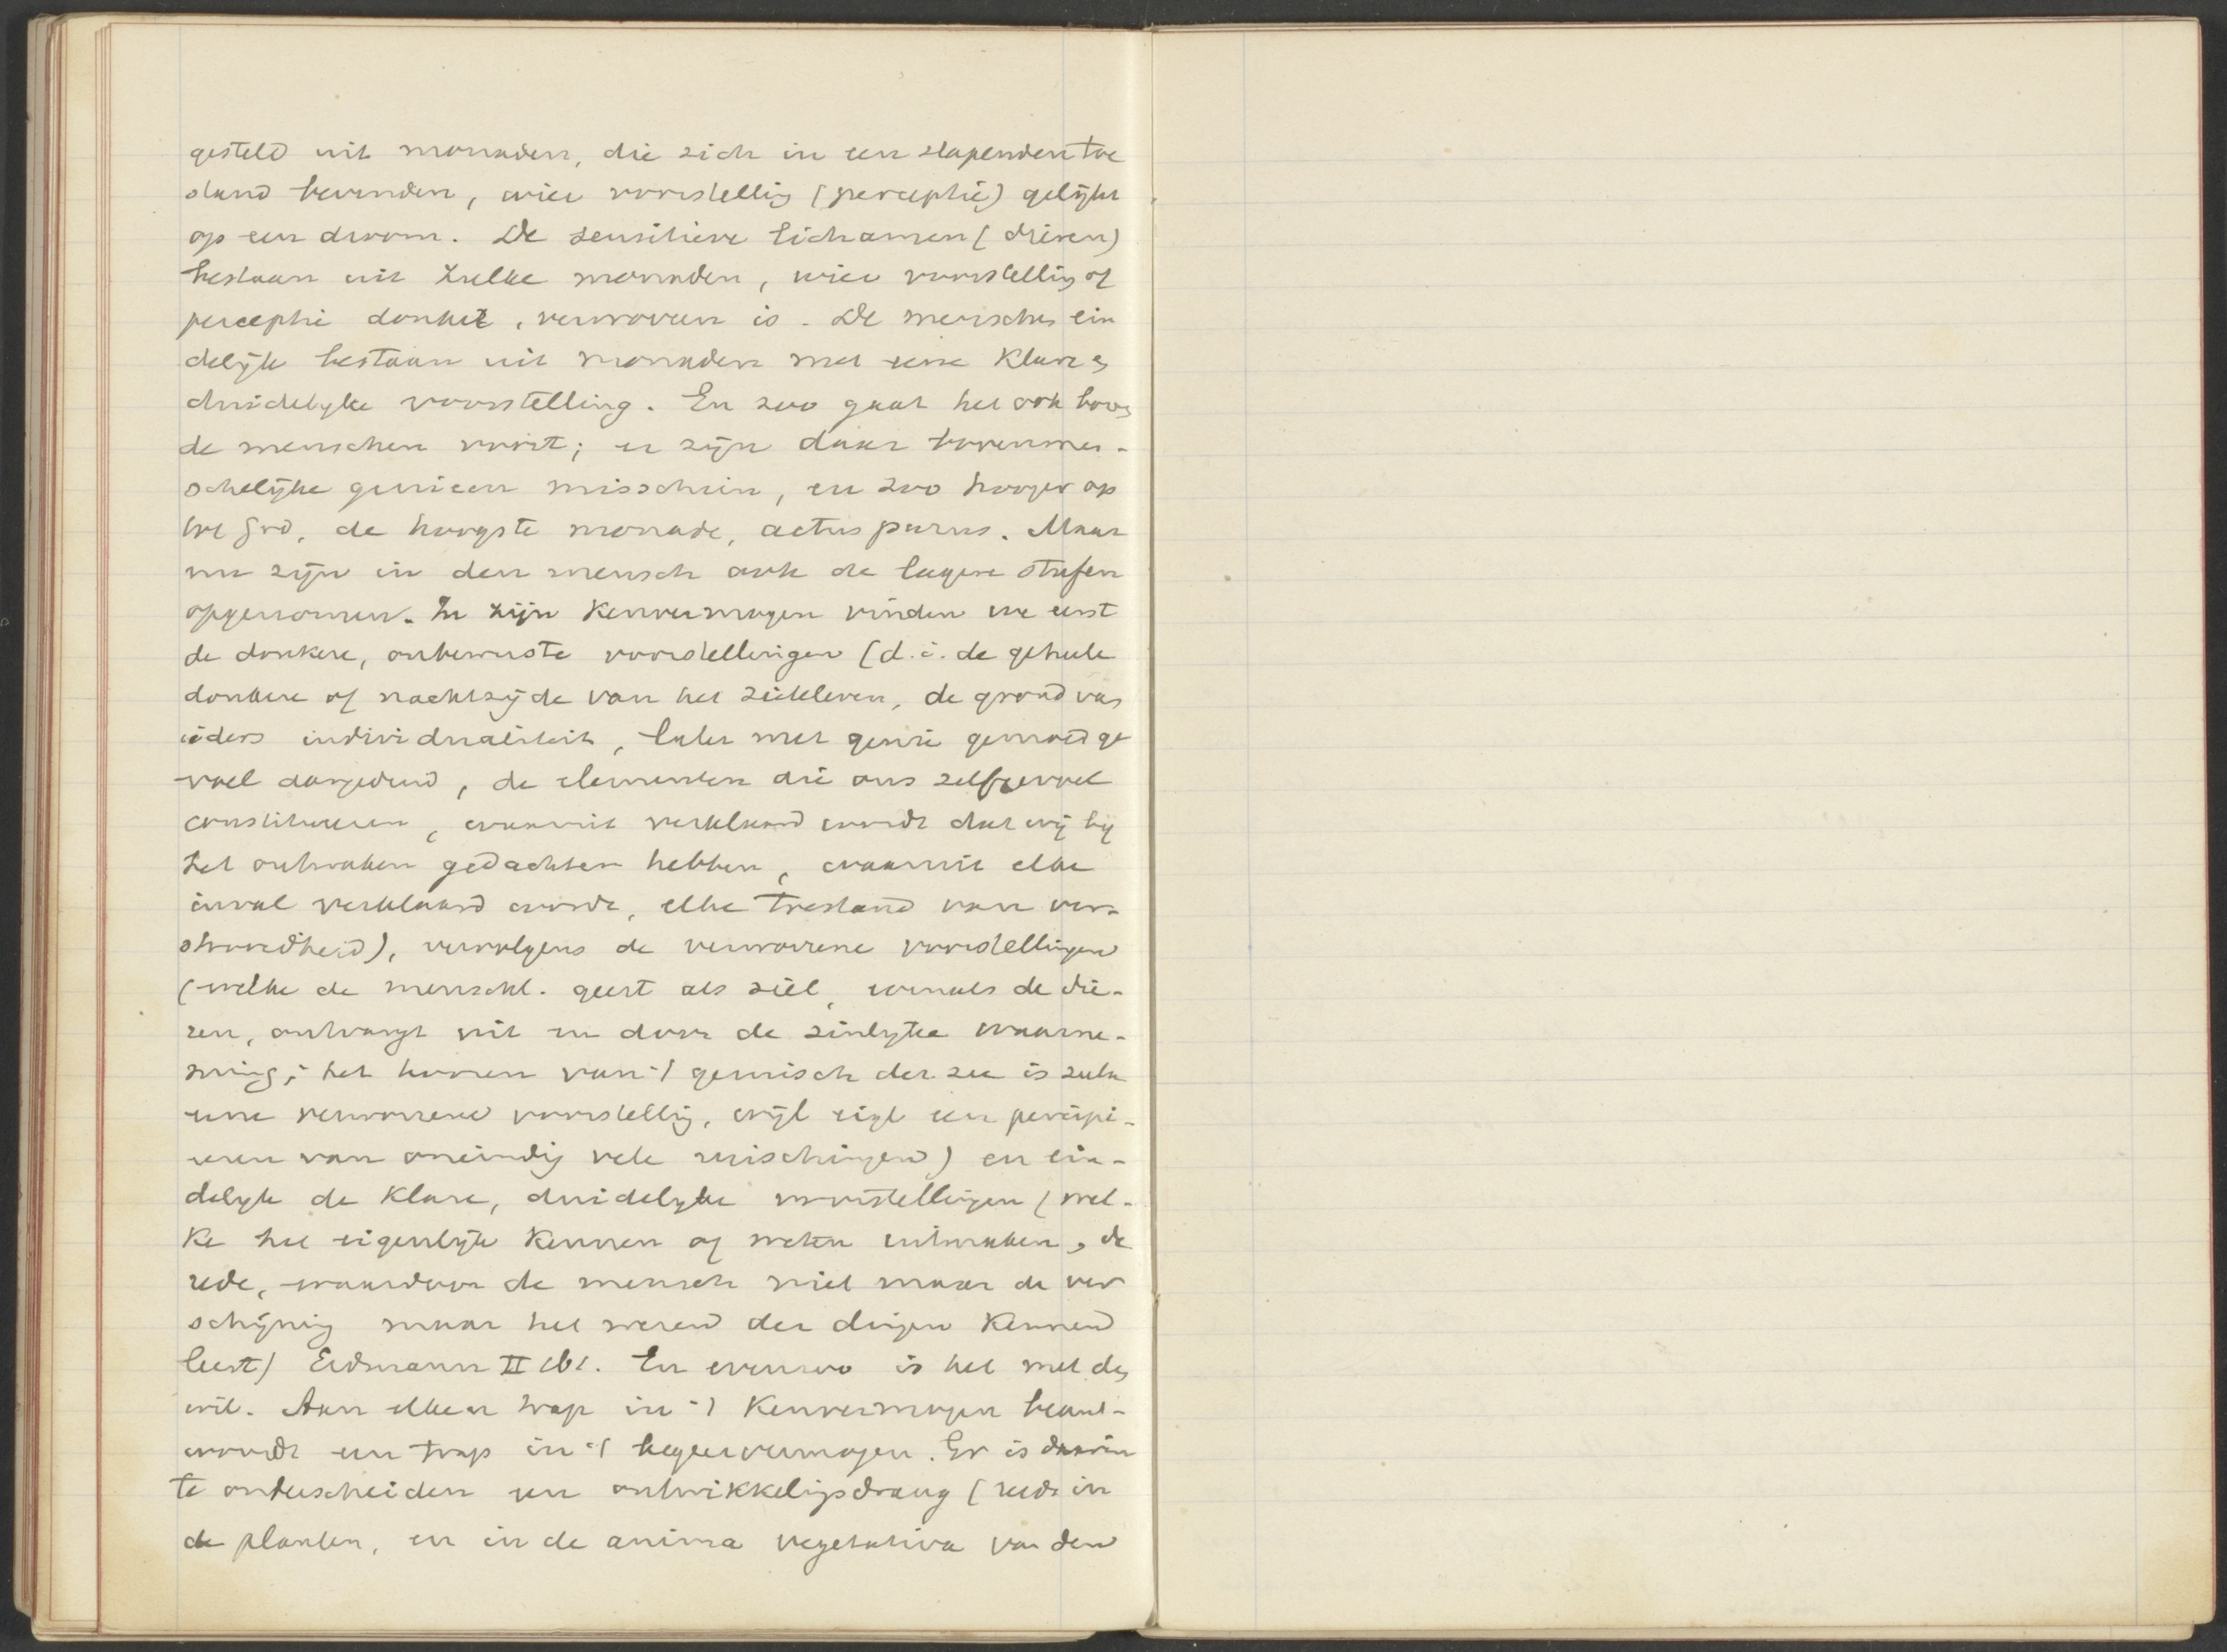 gesteld uit monaden, die zich in een slapenden toe
stand bevinden, wier voorstellig (perceptie) gelijkt
op een droom. De sensitieve lichamen (dieren)
bestaan uit zulke monaden, wier voorstellig of
perceptie donker, verworven is. De menschen ein
delijk bestaan uit monaden met eene klare en
duidelyke voorstelling. En zoo gaat het ook boven
de menschen voort; er zijn daar bovenmen-
schelijke genieen misschien, en zoo hooger op
tot God, de hoogste monade, actus purus. Maar
nu zijn in den mensch ook de lagere stufen
opgenomen. In zijn Kenvermogen vinden we eerst
de donkere, onbewuste voorstellingen (d.i. de geheele
donkere of nachtzijde van het zieleleven, de grond van
ieders individualiteit, later met genie gemoed ge
voel aangeduid, de elementen die ons zelfgevoel
constitueeren, waaruit verklaard wordt dat wij by
het ontwaken gedachten hebben, waaruit elke
inval verklaard wordt, elke toestand van ver-
strooidheid), vervolgens de verworrene voorstellingen
(welke de menschl. geest als ziel, evenals de die-
ren, ontvangt uit en door de zinlyke waarne-
ming; het hooren van 't geruisch der zee is zulk
eene verworrene voorstellig, wijl eigl een percipi-
eeren van oneindig vele ruischingen) en ein-
delyk de klare, duidelyke voorstellingen (wel-
ke het eigenlijke Kennen of weten uitmaken, de
rede, waardoor de mensch niet maar de ver
schijnig maar het wezen der dingen Kennen
leert) Erdmann II 161. En evenzoo is het met den
wil. Aan elken trap in 't Kenvermogen beant-
woordt een trap in 't begeervermogen. Er is daarin
te onderscheiden een ontwikkeligsdrang (reeds in
de planten, en in de anima vegetativa van den